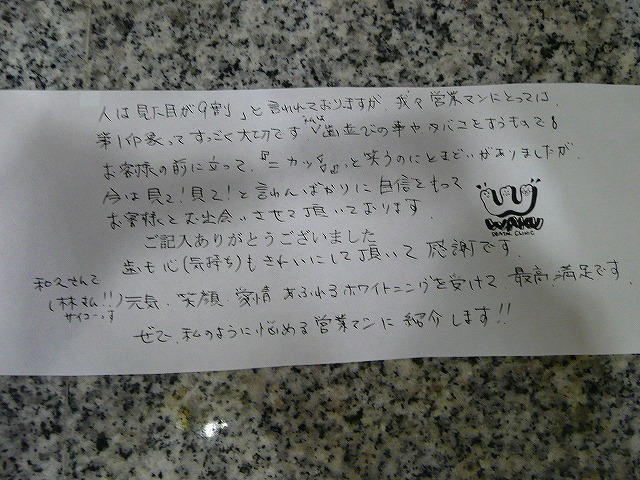 人は見た目が9割」と言われておりますが、我々営業マンにとっては、
第1印象ってすっごく大切です。歯並びの事やタバコをすうもので
お客様の前に立って、『ニカッ』っと笑うのにとまどいがありましたが、
今は見て!見て!と言わんばかりに自信をもって
お客様とお出会いさせて頂いております。
ご記入ありがとうございました
歯も心(気持ち)もきれいにして頂いて感謝です。
(林さん!!)元気、笑顔、愛情あふれるホワイトニングを受けて、最高、満足です。
サイコーっす
ぜひ、私のように悩める営業マンに紹介します!!
WAKU
DENTAL CLINIC